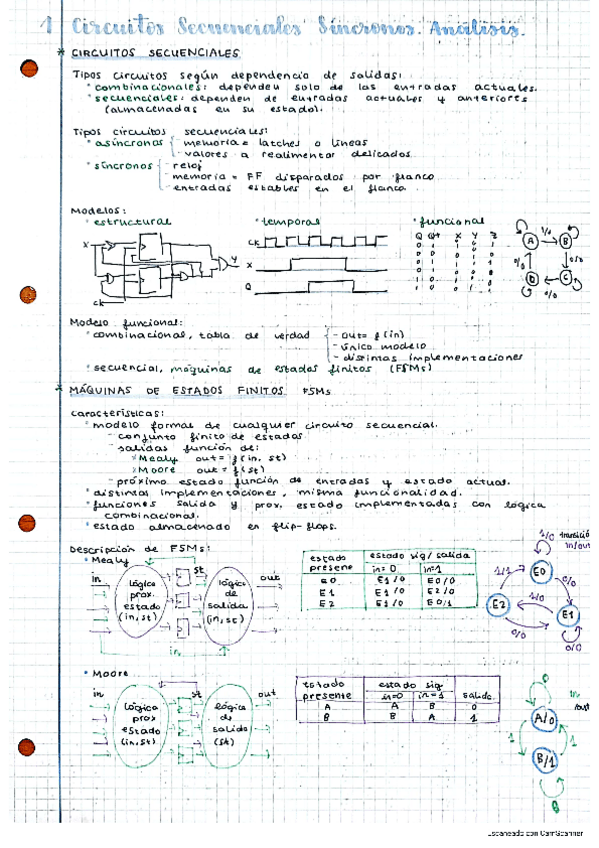 1 Circuitos Secuenciales Síncronos. Análisis.
* CIRCUITOS SECUENCIALES
Tipos circuitos según dependencia de salidas:
° combinacionales: dependen solo de las entradas actuales.
° secuenciales: dependen de entradas actuales y anteriores
(almacenadas en su estado).
Tipos circuitos secuenciales:
° asíncronos - memoria = latches o líneas
- valores a realimentar delicados
° síncronos - reloj
- memoria = FF disparados por flanco
- entradas estables en el flanco
Modelos:
° estructural ° temporal ° funcional
Modelo funcional:
° combinacional, tabla de verdad - out = f(in)
- único modelo
- distintas implementaciones
° secuencial, máquinas de estados finitos (FSMs)
* MÁQUINAS DE ESTADOS FINITOS FSMs
Características:
° modelo formal de cualquier circuito secuencial.
- conjunto finito de estados
- salidas función de:
* Mealy out = f(in, st)
* Moore out = f(st)
- próximo estado función de entradas y estado actual.
° distintas implementaciones, misma funcionalidad.
° funciones salida y prox. estado implementadas con lógica
combinacional.
° estado almacenado en flip-flops.
Descripción de FSMs:
° Mealy
in lógica prox. estado (in, st) st lógica de salida (in, st) out
in
estado presente estado sig / salida
in=0 in=1
E0 E1/0 E0/0
E1 E1/0 E2/0
E2 E1/0 E0/1
1/0 transició
in/out
E0 1/1 0/0 E2 1/0 E1 0/0 0/0
° Moore
in lógica prox estado (in, st) st lógica de salida (st) out
estado presente estado sig salida
in=0 in=1
A A B 0
B B A 1
0 in
/out
A/0
1 1
B/1
0
Escaneado con CamScanner